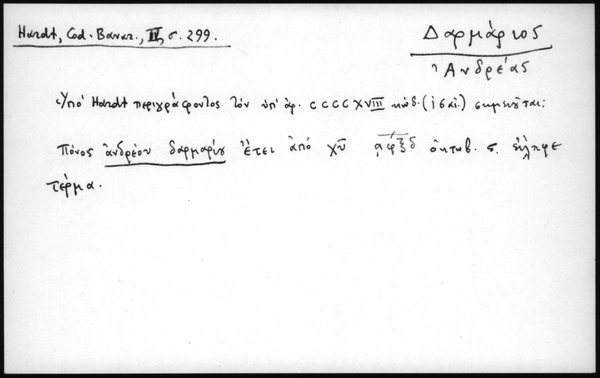 Hardt, Cod. Bavar., IV, σ. 299.
Δαρμάριος
Ἀνδρέας
Ὑπό Hardt περιγράφοντος τόν ὑπ' ἀρ. CCCCXVIII κώδ. (ις αἰ.) σημειοῦται:
Πόνος ἀνδρέου δαρμαρίου ἔτει ἀπό χῦ ͵αφξδ ὀκτωβ. ς. εἴληφε
τέρμα.